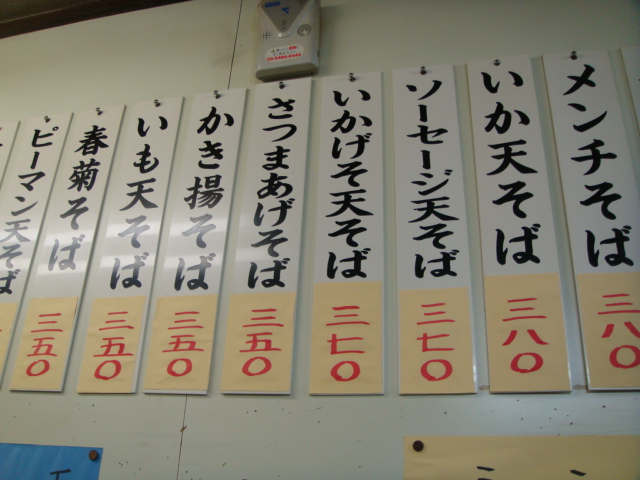 メンチそば
三八〇
いか天そば
三八〇
ソーセージ天そば
三七〇
いかげそ天そば
三七〇
さつまあげそば
三五〇
かき揚そば
三五〇
いも天そば
三五〇
春菊そば
三五〇
ピーマン天そば